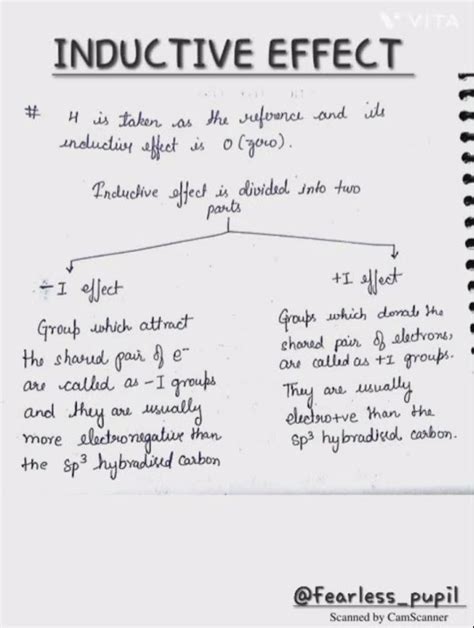 VITA
INDUCTIVE EFFECT
# H is taken as the reference and its
inductive effect is 0 (zero).
Inductive effect is divided into two
parts
-I effect
Group which attract
the shared pair of e⁻
are called as -I groups
and they are usually
more electronegative than
the sp³ hybradised carbon
+I effect
Groups which donate the
shared pair of electrons,
are called as +I groups.
They are usually
electro+ve than the
sp³ hybradised carbon.
@fearless_pupil
Scanned by CamScanner